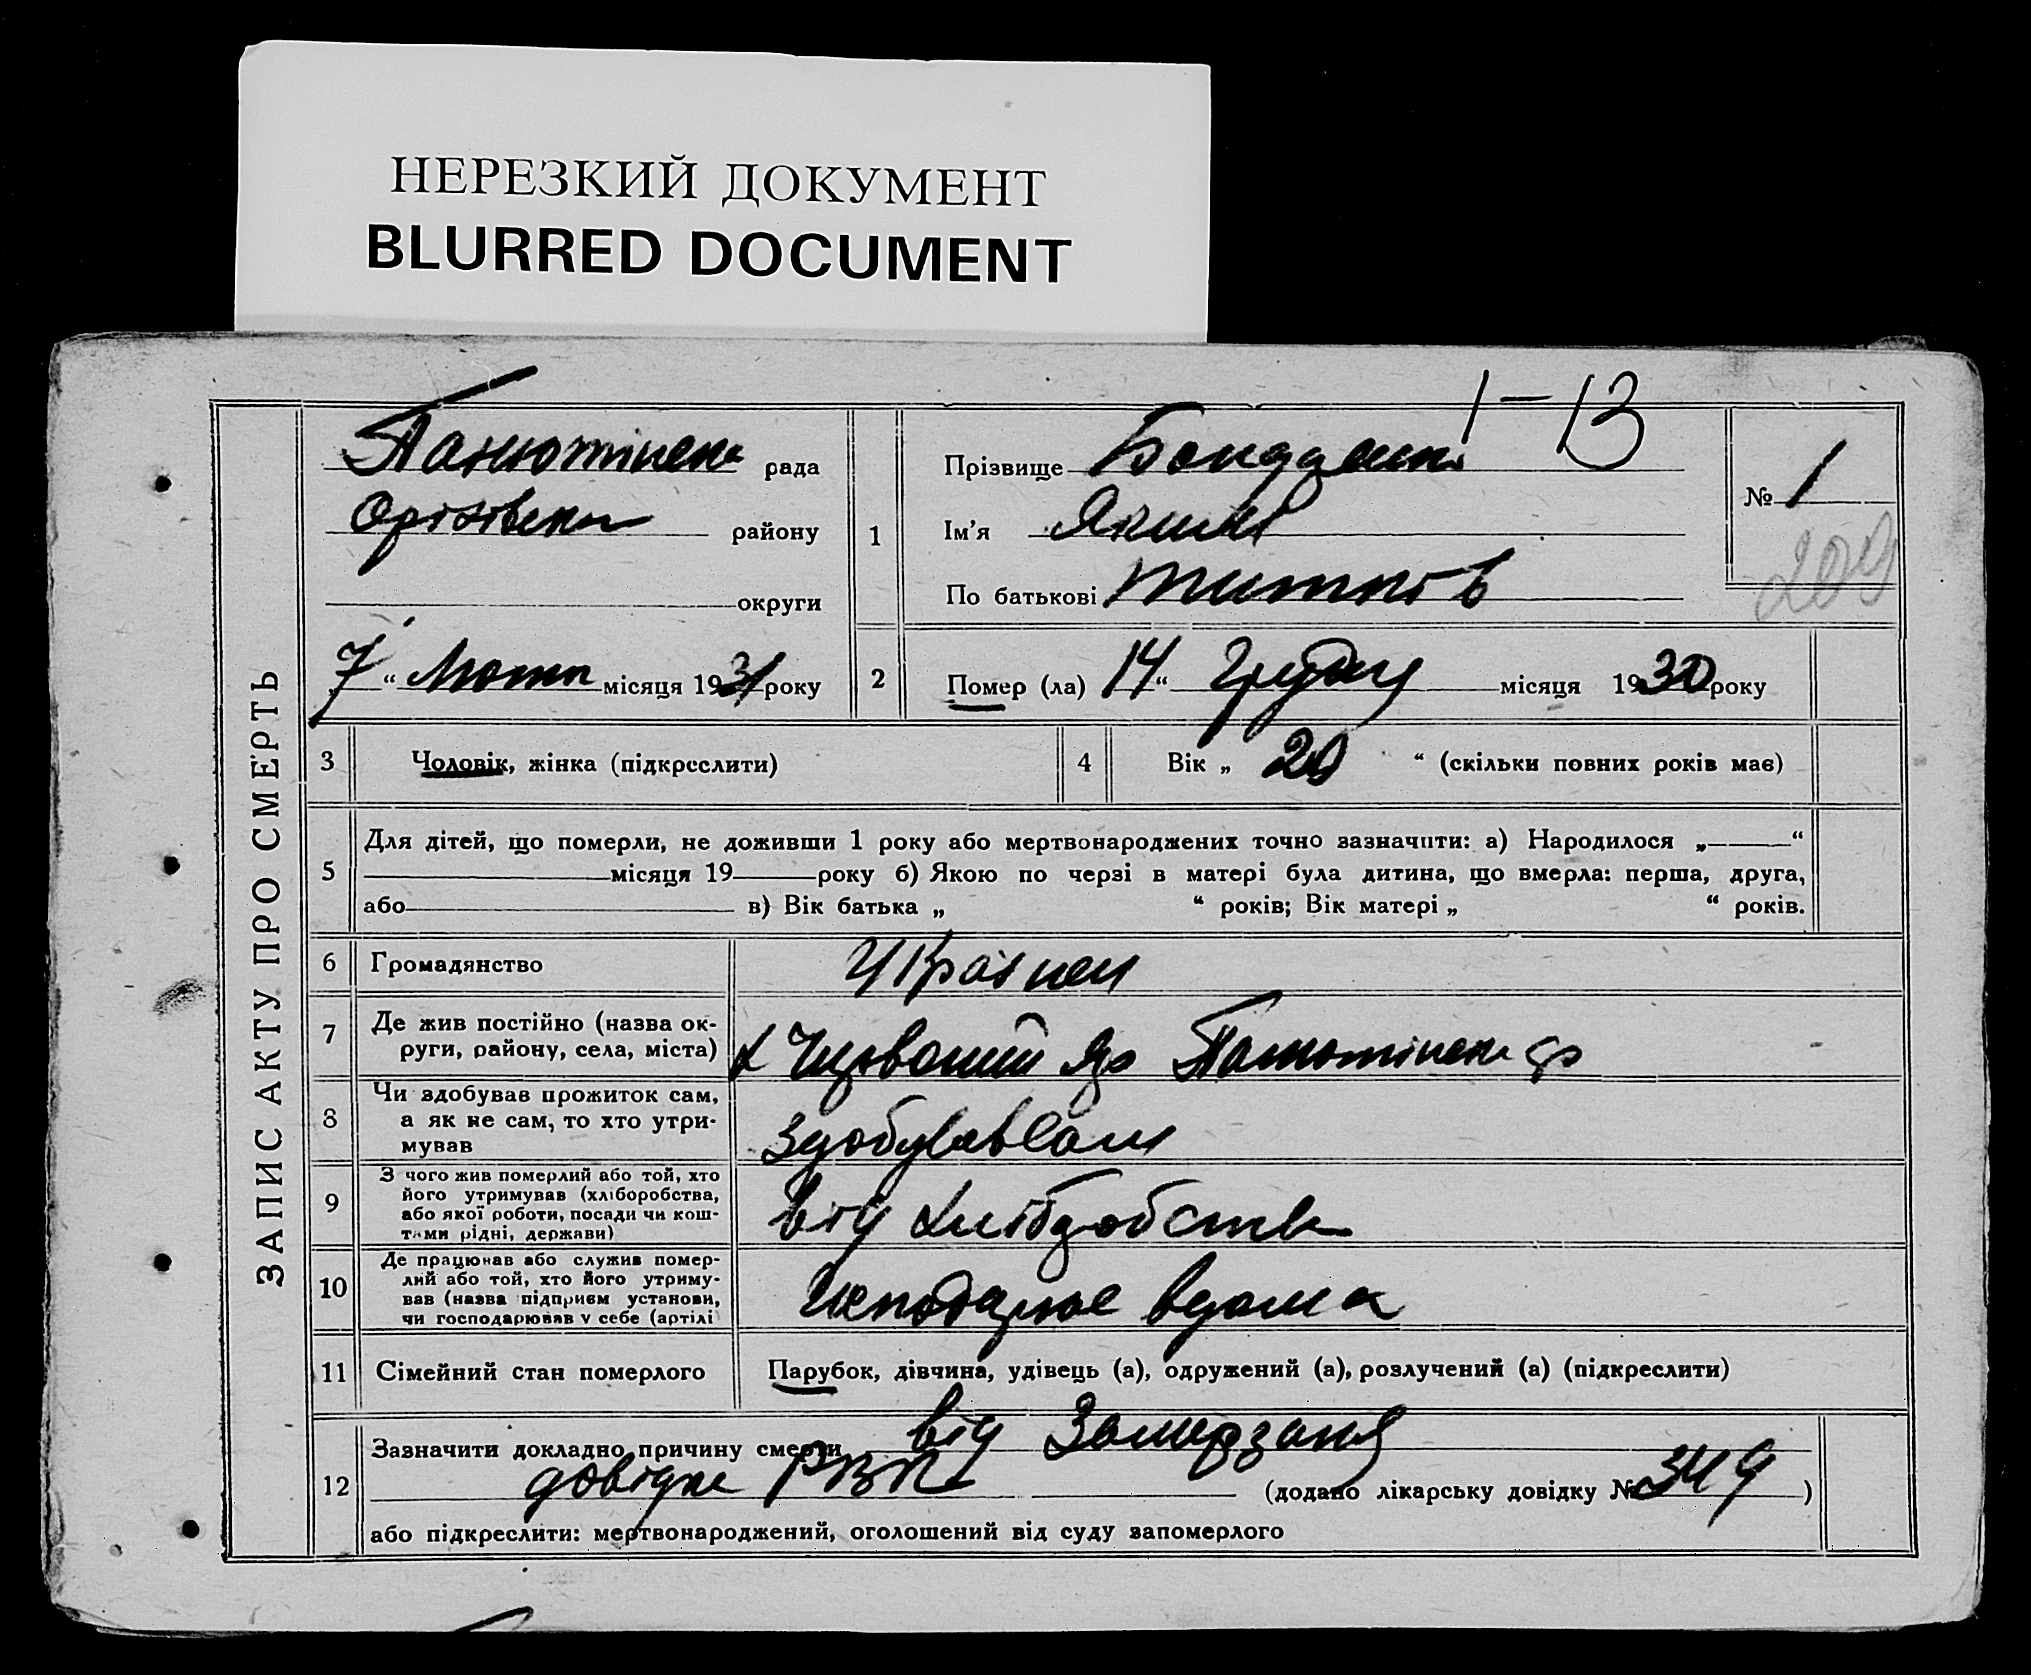 НЕРЕЗКИЙ ДОКУМЕНТ
BLURRED DOCUMENT
1-13
ЗАПИС АКТУ ПРО СМЕРТЬ
Панютінська рада
району
округи
7 “ Лютого місяця 1931 року
1
Прізвище
Ім’я Яким
По батькові
№ 1
209
2
Помер (ла) 14 “ Грудня місяця 1930 року
3
Чоловік, жінка (підкреслити)
4
Вік „ 20 “ (скільки повних років має)
5
Для дітей, що померли, не доживши 1 року або мертвонароджених точно зазначити: а) Народилося „ “
місяця 19 року б) Якою по черзі в матері була дитина, що вмерла: перша, друга,
або в) Вік батька „ “ років; Вік матері „ “ років.
6
Громадянство
Україней
7
Де жив постійно (назва ок-
руги, району, села, міста)
х Червоний Яр Панютінська ср
8
Чи здобував прожиток сам,
а як не сам, то хто утри-
мував
здобував сам
9
З чого жив померлий або той, хто
його утримував (хліборобства,
або якої роботи, посади чи кош-
тами рідні, держави)
від хліборобства
10
Де працював або служив помер-
лий або той, хто його утриму-
вав (назва підприєм установи,
чи господарював у себе (артілі
вдома
11
Сімейний стан померлого
Парубок, дівчина, удівець (а), одружений (а), розлучений (а) (підкреслити)
12
Зазначити докладно причину смерти від Замерзаня
довідка РВК (додано лікарську довідку № 349 )
або підкреслити: мертвонароджений, оголошений від суду запомерлого